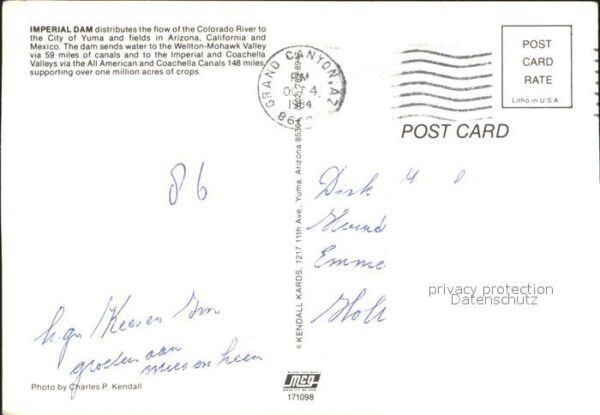 IMPERIAL DAM distributes the flow of the Colorado River to
the City of Yuma and fields in Arizona, California and
Mexico. The dam sends water to the Wellton-Mohawk Valley
via 59 miles of canals and to the Imperial and Coachella
Valleys via the All American and Coachella Canals 148 miles,
supporting over one million acres of crops.
GRAND CANYON, AZ
PM
1984
POST
CARD
RATE
Litho in U.S.A.
POST CARD
86
Dirk
Emme
privacy protection
Datenschutz
Kees en
groeten aan
© KENDALL KARDS, 1217 11th Ave., Yuma, Arizona 85364
Photo by Charles P. Kendall
mcg
171098